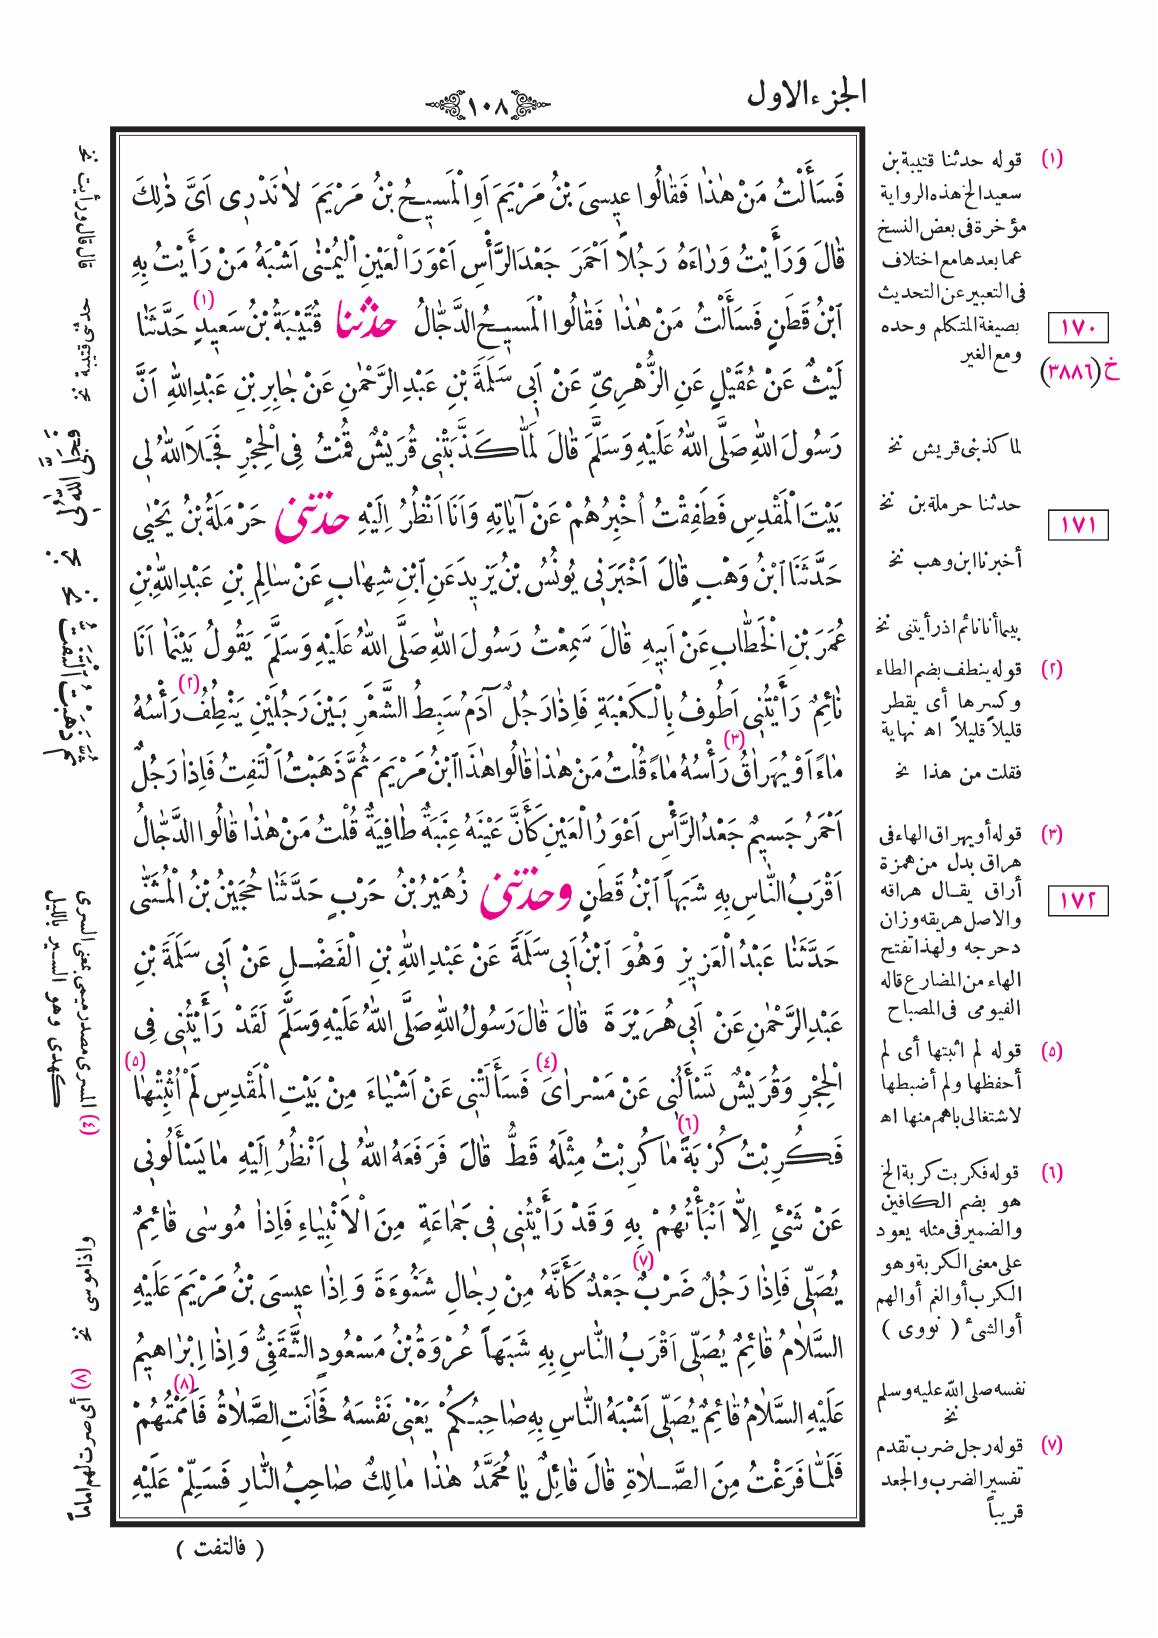 الجزء الاول
١٠٨
فَسَأَلْتُ مَنْ هٰذَا فَقَالُوا عِيسَى بْنُ مَرْيَمَ اَوِ الْمَسِيحُ بْنُ مَرْيَمَ لَا نَدْرِى اَىَّ ذٰلِكَ
قَالَ وَرَأَيْتُ وَرَاءَهُ رَجُلاً اَحْمَرَ جَعْدَ الرَّأْسِ اَعْوَرَ الْعَيْنِ الْيُمْنٰى اَشْبَهُ مَنْ رَأَيْتُ بِهِ
اَبْنُ قَطَنٍ فَسَأَلْتُ مَنْ هٰذَا فَقَالُوا الْمَسِيحُ الدَّجَّالُ حدثنا قُتَيْبَةُ بْنُ سَعِيدٍ (١) حَدَّثَنَا
لَيْثٌ عَنْ عُقَيْلٍ عَنِ الزُّهْرِىِّ عَنْ اَبِى سَلَمَةَ بْنِ عَبْدِ الرَّحْمٰنِ عَنْ جَابِرِ بْنِ عَبْدِ اللّٰهِ اَنَّ
رَسُولَ اللّٰهِ صَلَّى اللّٰهُ عَلَيْهِ وَسَلَّمَ قَالَ لَمَّا كَذَّبَتْنِى قُرَيْشٌ قُمْتُ فِى الْحِجْرِ فَجَلَا اللّٰهُ لِى
بَيْتَ الْمَقْدِسِ فَطَفِقْتُ اُخْبِرُهُمْ عَنْ آيَاتِهِ وَاَنَا اَنْظُرُ اِلَيْهِ حدثنى حَرْمَلَةُ بْنُ يَحْيٰى
حَدَّثَنَا ابْنُ وَهْبٍ قَالَ اَخْبَرَنِى يُونُسُ بْنُ يَزِيدَ عَنِ ابْنِ شِهَابٍ عَنْ سَالِمِ بْنِ عَبْدِ اللّٰهِ بْنِ
عُمَرَ بْنِ الْخَطَّابِ عَنْ اَبِيهِ قَالَ سَمِعْتُ رَسُولَ اللّٰهِ صَلَّى اللّٰهُ عَلَيْهِ وَسَلَّمَ يَقُولُ بَيْنَمَا اَنَا
نَائِمٌ رَأَيْتُنِى اَطُوفُ بِالْكَعْبَةِ فَاِذَا رَجُلٌ آدَمُ سَبِطُ الشَّعْرِ بَيْنَ رَجُلَيْنِ يَنْطِفُ (٢) رَأْسُهُ
مَاءً اَوْ يُهَرَاقُ (٣) رَأْسُهُ مَاءً قُلْتُ مَنْ هٰذَا قَالُوا هٰذَا ابْنُ مَرْيَمَ ثُمَّ ذَهَبْتُ اَلْتَفِتُ فَاِذَا رَجُلٌ
اَحْمَرُ جَسِيمٌ جَعْدُ الرَّأْسِ اَعْوَرُ الْعَيْنِ كَأَنَّ عَيْنَهُ عِنَبَةٌ طَافِيَةٌ قُلْتُ مَنْ هٰذَا قَالُوا الدَّجَّالُ
اَقْرَبُ النَّاسِ بِهِ شَبَهاً ابْنُ قَطَنٍ وحدثنى زُهَيْرُ بْنُ حَرْبٍ حَدَّثَنَا حُجَيْنُ بْنُ الْمُثَنّٰى
حَدَّثَنَا عَبْدُ الْعَزِيزِ وَهُوَ ابْنُ اَبِى سَلَمَةَ عَنْ عَبْدِ اللّٰهِ بْنِ الْفَضْلِ عَنْ اَبِى سَلَمَةَ بْنِ
عَبْدِ الرَّحْمٰنِ عَنْ اَبِى هُرَيْرَةَ قَالَ قَالَ رَسُولُ اللّٰهِ صَلَّى اللّٰهُ عَلَيْهِ وَسَلَّمَ لَقَدْ رَأَيْتُنِى فِى
الْحِجْرِ وَقُرَيْشٌ تَسْأَلُنِى عَنْ مَسْرَاىَ (٤) فَسَأَلَتْنِى عَنْ اَشْيَاءَ مِنْ بَيْتِ الْمَقْدِسِ لَمْ اُثْبِتْهَا (٥)
فَكُرِبْتُ كُرْبَةً (٦) مَا كُرِبْتُ مِثْلَهُ قَطُّ قَالَ فَرَفَعَهُ اللّٰهُ لِى اَنْظُرُ اِلَيْهِ مَا يَسْأَلُونِى
عَنْ شَىْءٍ اِلَّا اَنْبَأْتُهُمْ بِهِ وَقَدْ رَأَيْتُنِى فِى جَمَاعَةٍ مِنَ الْاَنْبِيَاءِ فَاِذَا مُوسٰى قَائِمٌ
يُصَلِّى فَاِذَا رَجُلٌ ضَرْبٌ (٧) جَعْدٌ كَأَنَّهُ مِنْ رِجَالِ شَنُوءَةَ وَاِذَا عِيسَى بْنُ مَرْيَمَ عَلَيْهِ
السَّلَامُ قَائِمٌ يُصَلِّى اَقْرَبُ النَّاسِ بِهِ شَبَهاً عُرْوَةُ بْنُ مَسْعُودٍ الثَّقَفِىُّ وَاِذَا اِبْرَاهِيمُ
عَلَيْهِ السَّلَامُ قَائِمٌ يُصَلِّى اَشْبَهُ النَّاسِ بِهِ صَاحِبُكُمْ يَعْنِى نَفْسَهُ فَحَانَتِ الصَّلَاةُ فَاَمَمْتُهُمْ (٨)
فَلَمَّا فَرَغْتُ مِنَ الصَّلَاةِ قَالَ قَائِلٌ يَا مُحَمَّدُ هٰذَا مَالِكٌ صَاحِبُ النَّارِ فَسَلِّمْ عَلَيْهِ
( فالتفت )
(١) قوله حدثنا قتيبة بن
سعيد الخ هذه الرواية
مؤخرة فى بعض النسخ
عما بعدها مع اختلاف
فى التعبير عن التحديث
بصيغة المتكلم وحده
ومع الغير
١٧٠
خ (٣٨٨٦)
لما كذبنى قريش نخ
حدثنا حرملة بن نخ
١٧١
أخبرنا ابن وهب نخ
بينما أنا نائم اذ رأيتنى نخ
(٢) قوله ينطف بضم الطاء
وكسرها أى يقطر
قليلاً قليلاً اه نهاية
فقلت من هذا نخ
(٣) قوله أو يهراق الهاء فى
هراق بدل من همزة
أراق يقال هراقه
والاصل هريقه وزان
دحرجه ولهذا تفتح
الهاء من المضارع قاله
الفيومى فى المصباح
١٧٢
(٥) قوله لم اثبتها أى لم
أحفظها ولم أضبطها
لاشتغالى باهم منها اه
(٦) قوله فكربت كربة الخ
هو بضم الكافين
والضمير فى مثله يعود
على معنى الكربة وهو
الكرب أو الغم أو الهم
أو الشىء ( نووى )
نفسه صلى الله عليه وسلم
نخ
(٧) قوله رجل ضرب تقدم
تفسير الضرب والجعد
قريباً
قال قال ورأيت نخ
حدثنى قتيبة نخ
فجلى الله لى نخ
ثم ذهبت التفت نخ
(٤) المسرى مصدر ميمى بمعنى السرى
كهدى وهو السير بالليل
واذا موسى نخ
(٨) أى صرت لهم اماماً